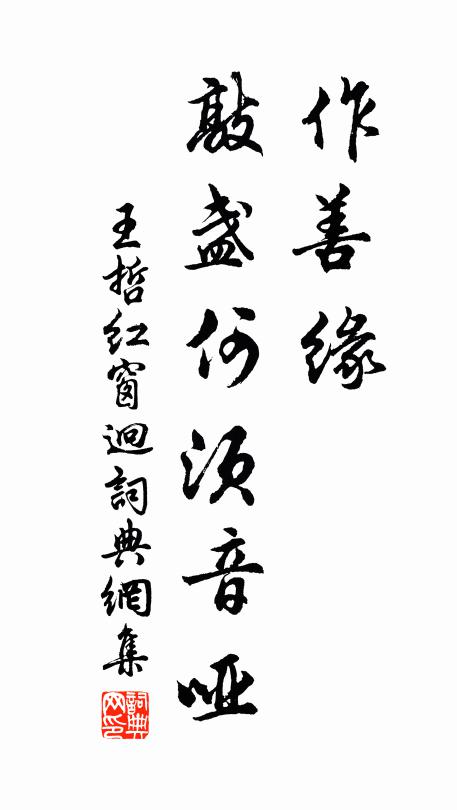 作善緣
敲盞何須音啞
王哲紅窗迥詞典網集
詞典
网印